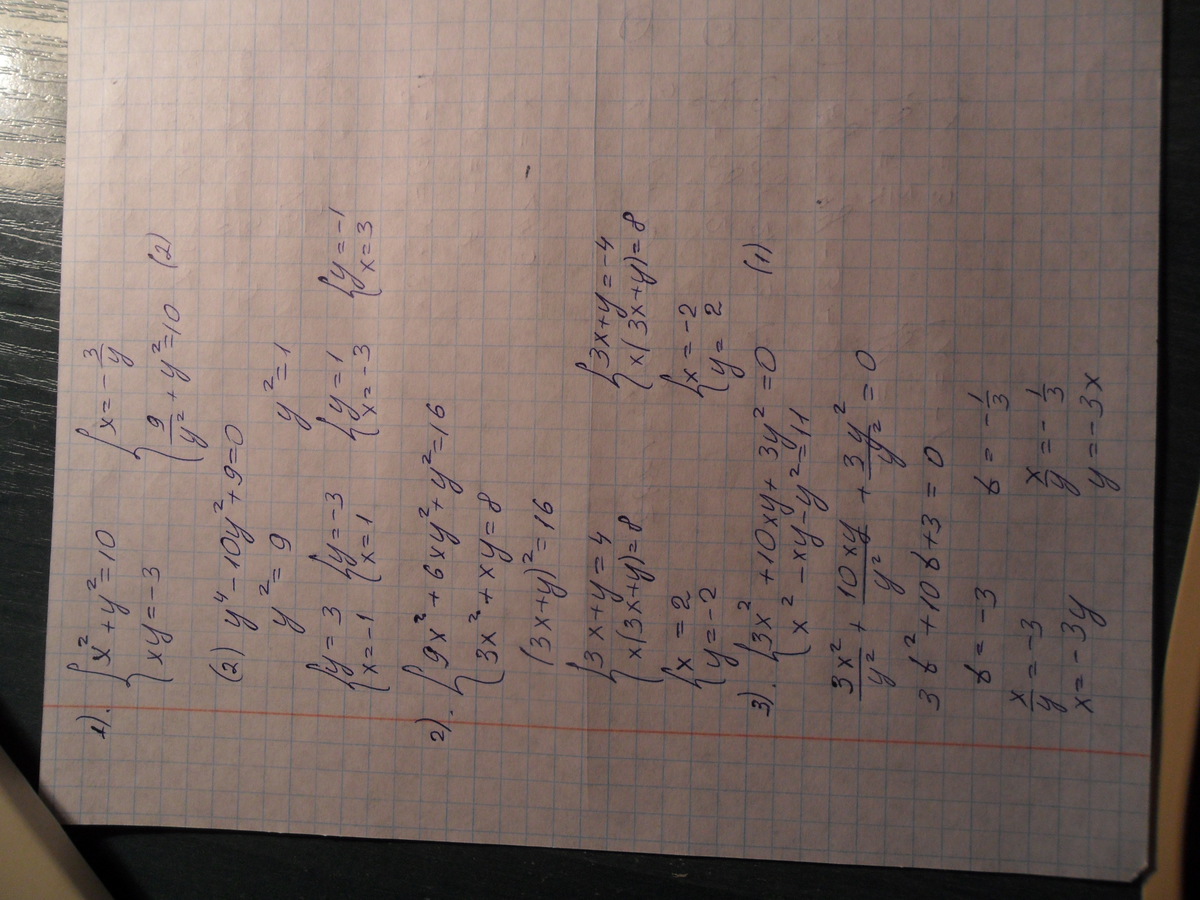 1). { x² + y² = 10 { x = - 3/y
xy = -3 9/y² + y² = 10 (2)
(2) y⁴ - 10y² + 9 = 0
y² = 9 y² = 1
{ y = 3 { y = -3 { y = 1 { y = -1
x = -1 x = 1 x = -3 x = 3
2). { 9x² + 6xy² + y² = 16
3x² + xy = 8
(3x+y)² = 16
{ 3x+y = 4 { 3x+y = -4
x(3x+y) = 8 x(3x+y) = 8
{ x = 2 { x = -2
y = -2 y = 2
3). { 3x² + 10xy + 3y² = 0 (1)
x² - xy - y² = 11
3x²/y² + 10xy/y² + 3y²/y² = 0
3t² + 10t + 3 = 0
t = -3 t = - 1/3
x/y = -3 x/y = - 1/3
x = -3y y = -3x